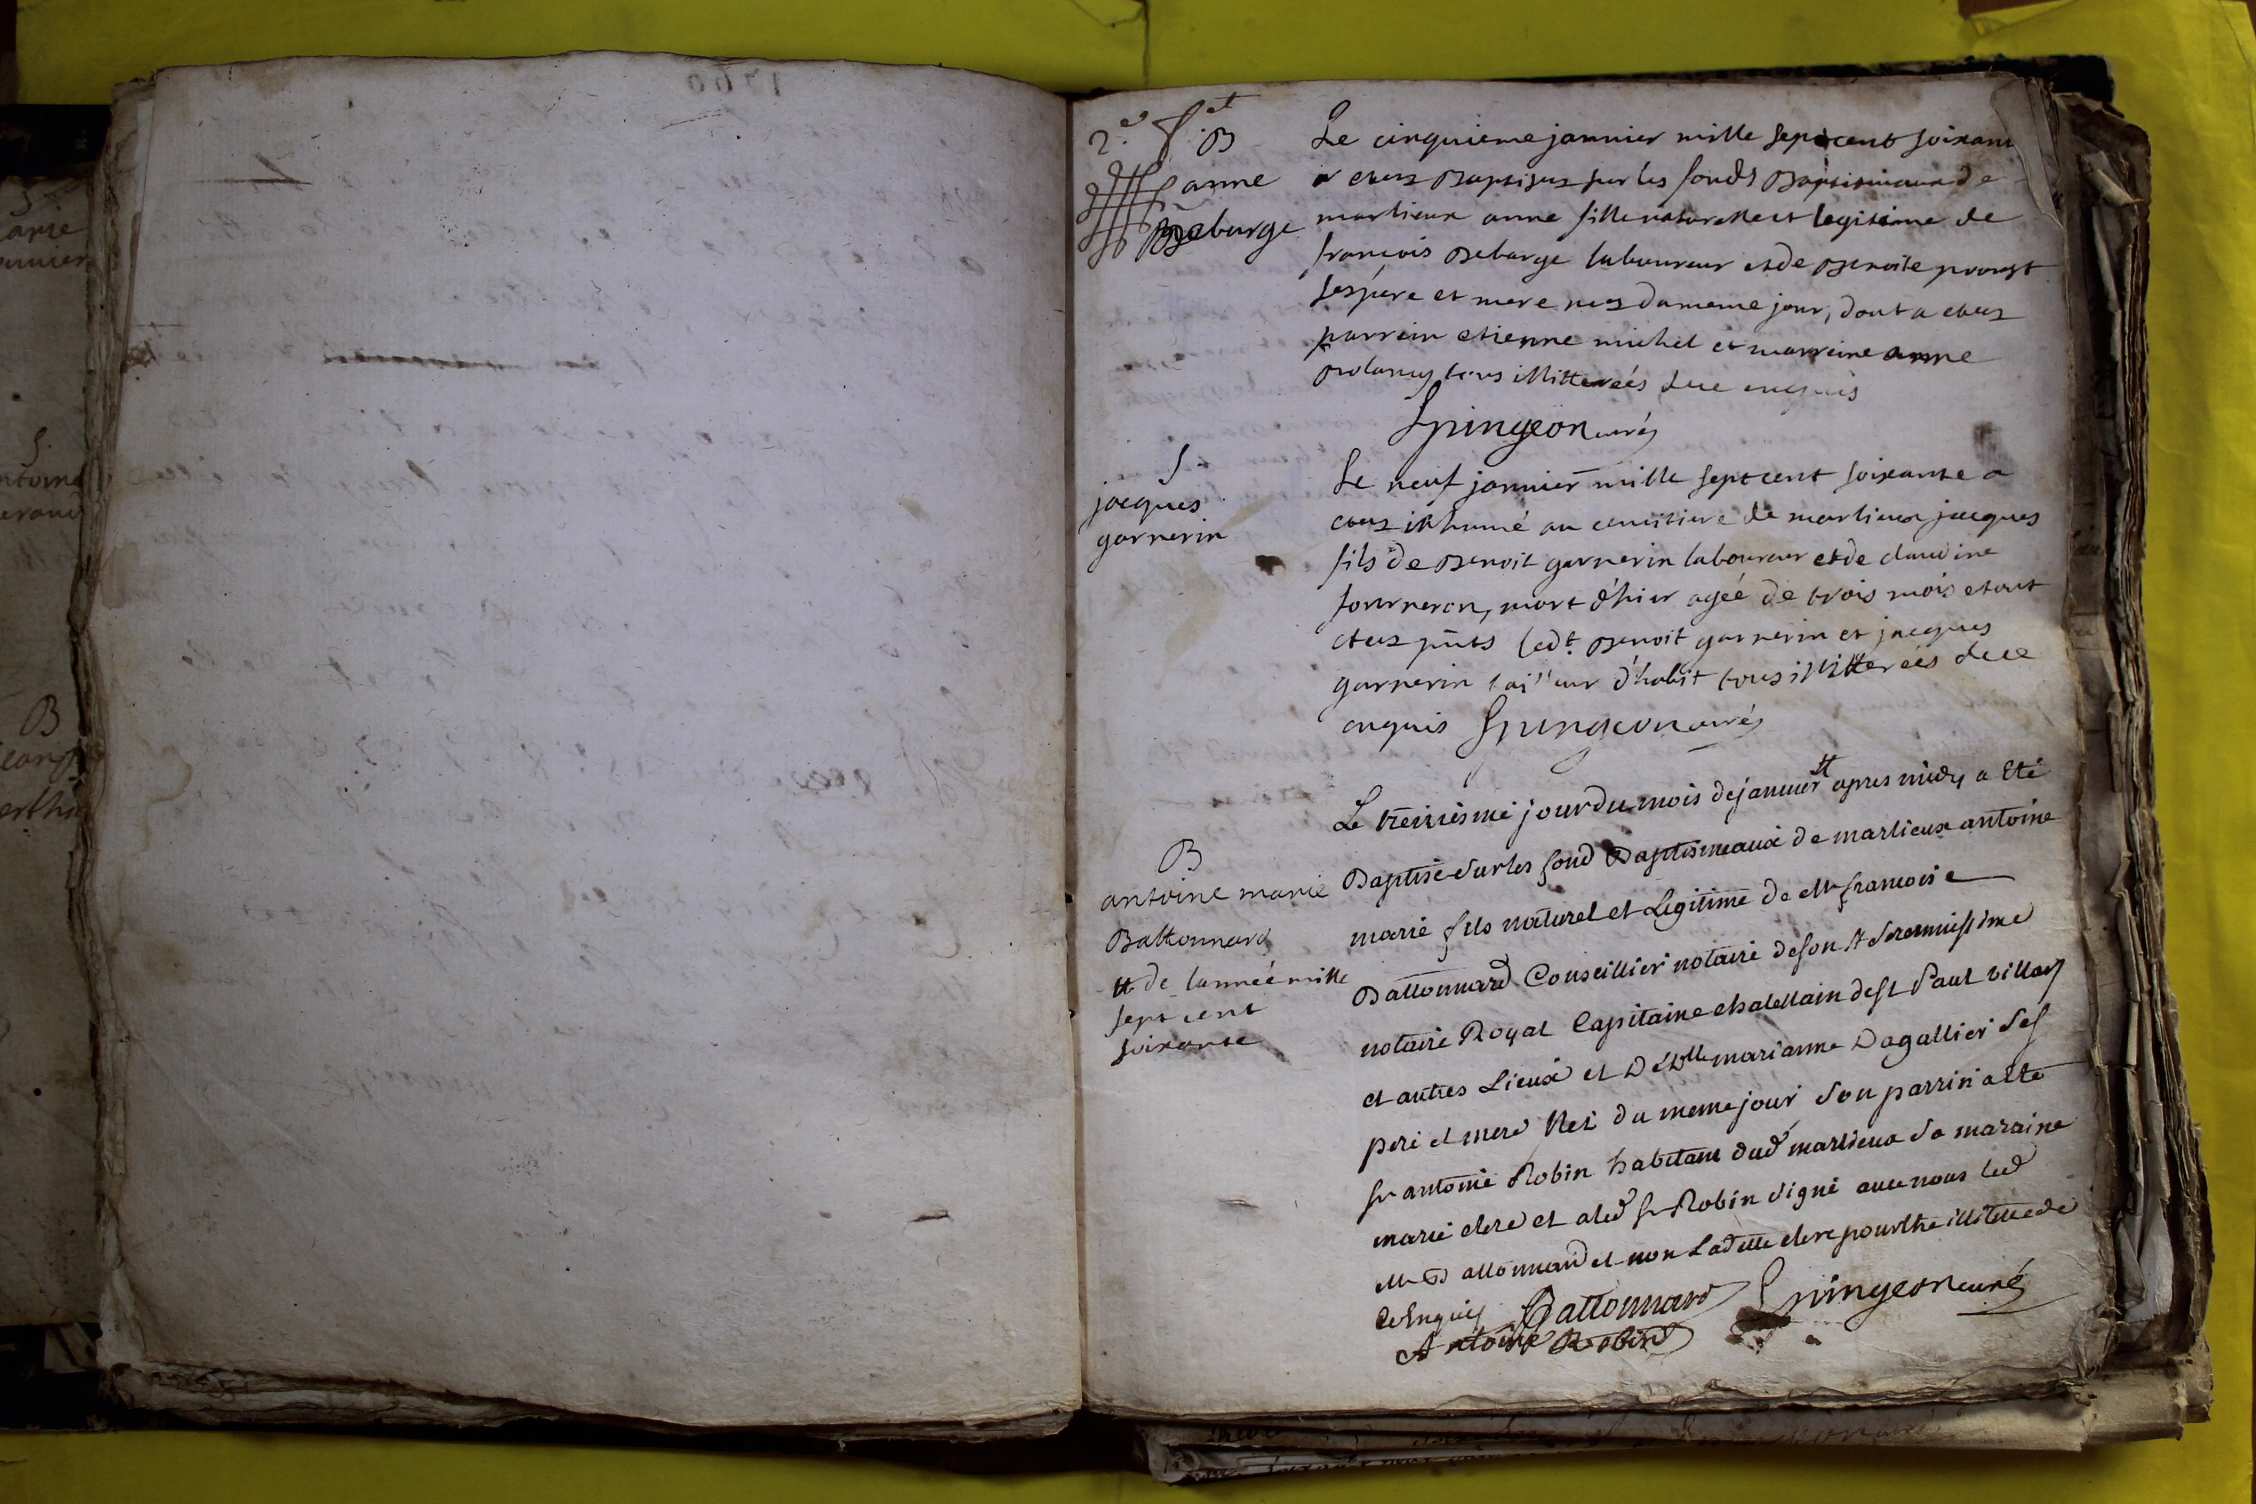 1760
2.e f.et
B
anne
Debarge
Le cinquieme janvier mille sept cent soixan
a etez Baptisez sur les fonds Baptismaux de
marlieux anne fille naturelle et legitime de
francois Debarge laboureur et de Benoite provost
ses pere et mere nez du meme jour, dont a etez
parrein etienne michel et marreine anne
tous illitterées de ce enquis
Spingeon curé
S
jacques
garnerin
Le neuf janvier mille sept cent soixante a
etez inhumé au cemitiere de marlieux jacques
fils de Benoit garnerin laboureur et de claudine
fourneron, mort d'hier ageé de trois mois etont
etez pnts led.t Benoit garnerin et jacques
garnerin tailleur d'habit tous illitterées de ce
enquis Spingeon curé
B
antoine marie
Battonnard
tt de lanneé mille
sept cent
soixante
Le treiziesme jour du mois de janvier tt apres midy a Eté
Baptisé sur les fond Baptismeaux de marlieux antoine
marie fils naturel et Legitime de Me francois
Battonnard Conseillier notaire de son A Serennissime
notaire Royal Capitaine chatellain de st Paul villars
et autres Lieux et De Dlle marianne Dagallier ses
pere et mere Né du meme jour son parrin a eté
sr antoine Robin habitant dud marlieux sa maraine
marie clere et a led sr Robin signé avec nous led
Me Battonnard et non Ladette clere pour etre illiteree de
ce Enquis Battonnard Spingeon curé
Antoine Robin